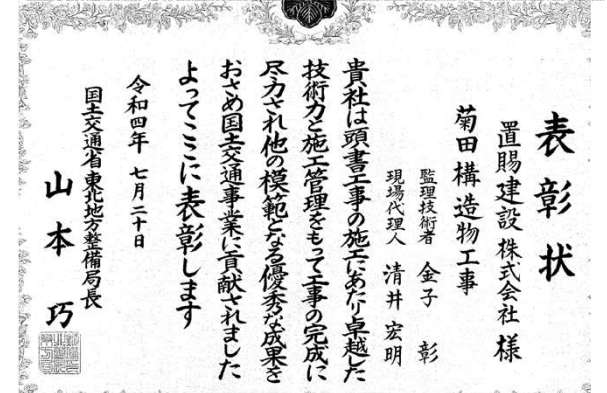 表彰状
置賜建設株式会社 様
菊田構造物工事
監理技術者 金子 彰
現場代理人 清井宏明
貴社は頭書工事の施工にあたり卓越した
技術力と施工管理をもって工事の完成に
尽力され他の模範となる優秀な成果を
おさめ国土交通事業に貢献されました
よってここに表彰します
令和四年 七月二十日
国土交通省東北地方整備局長
山本 巧